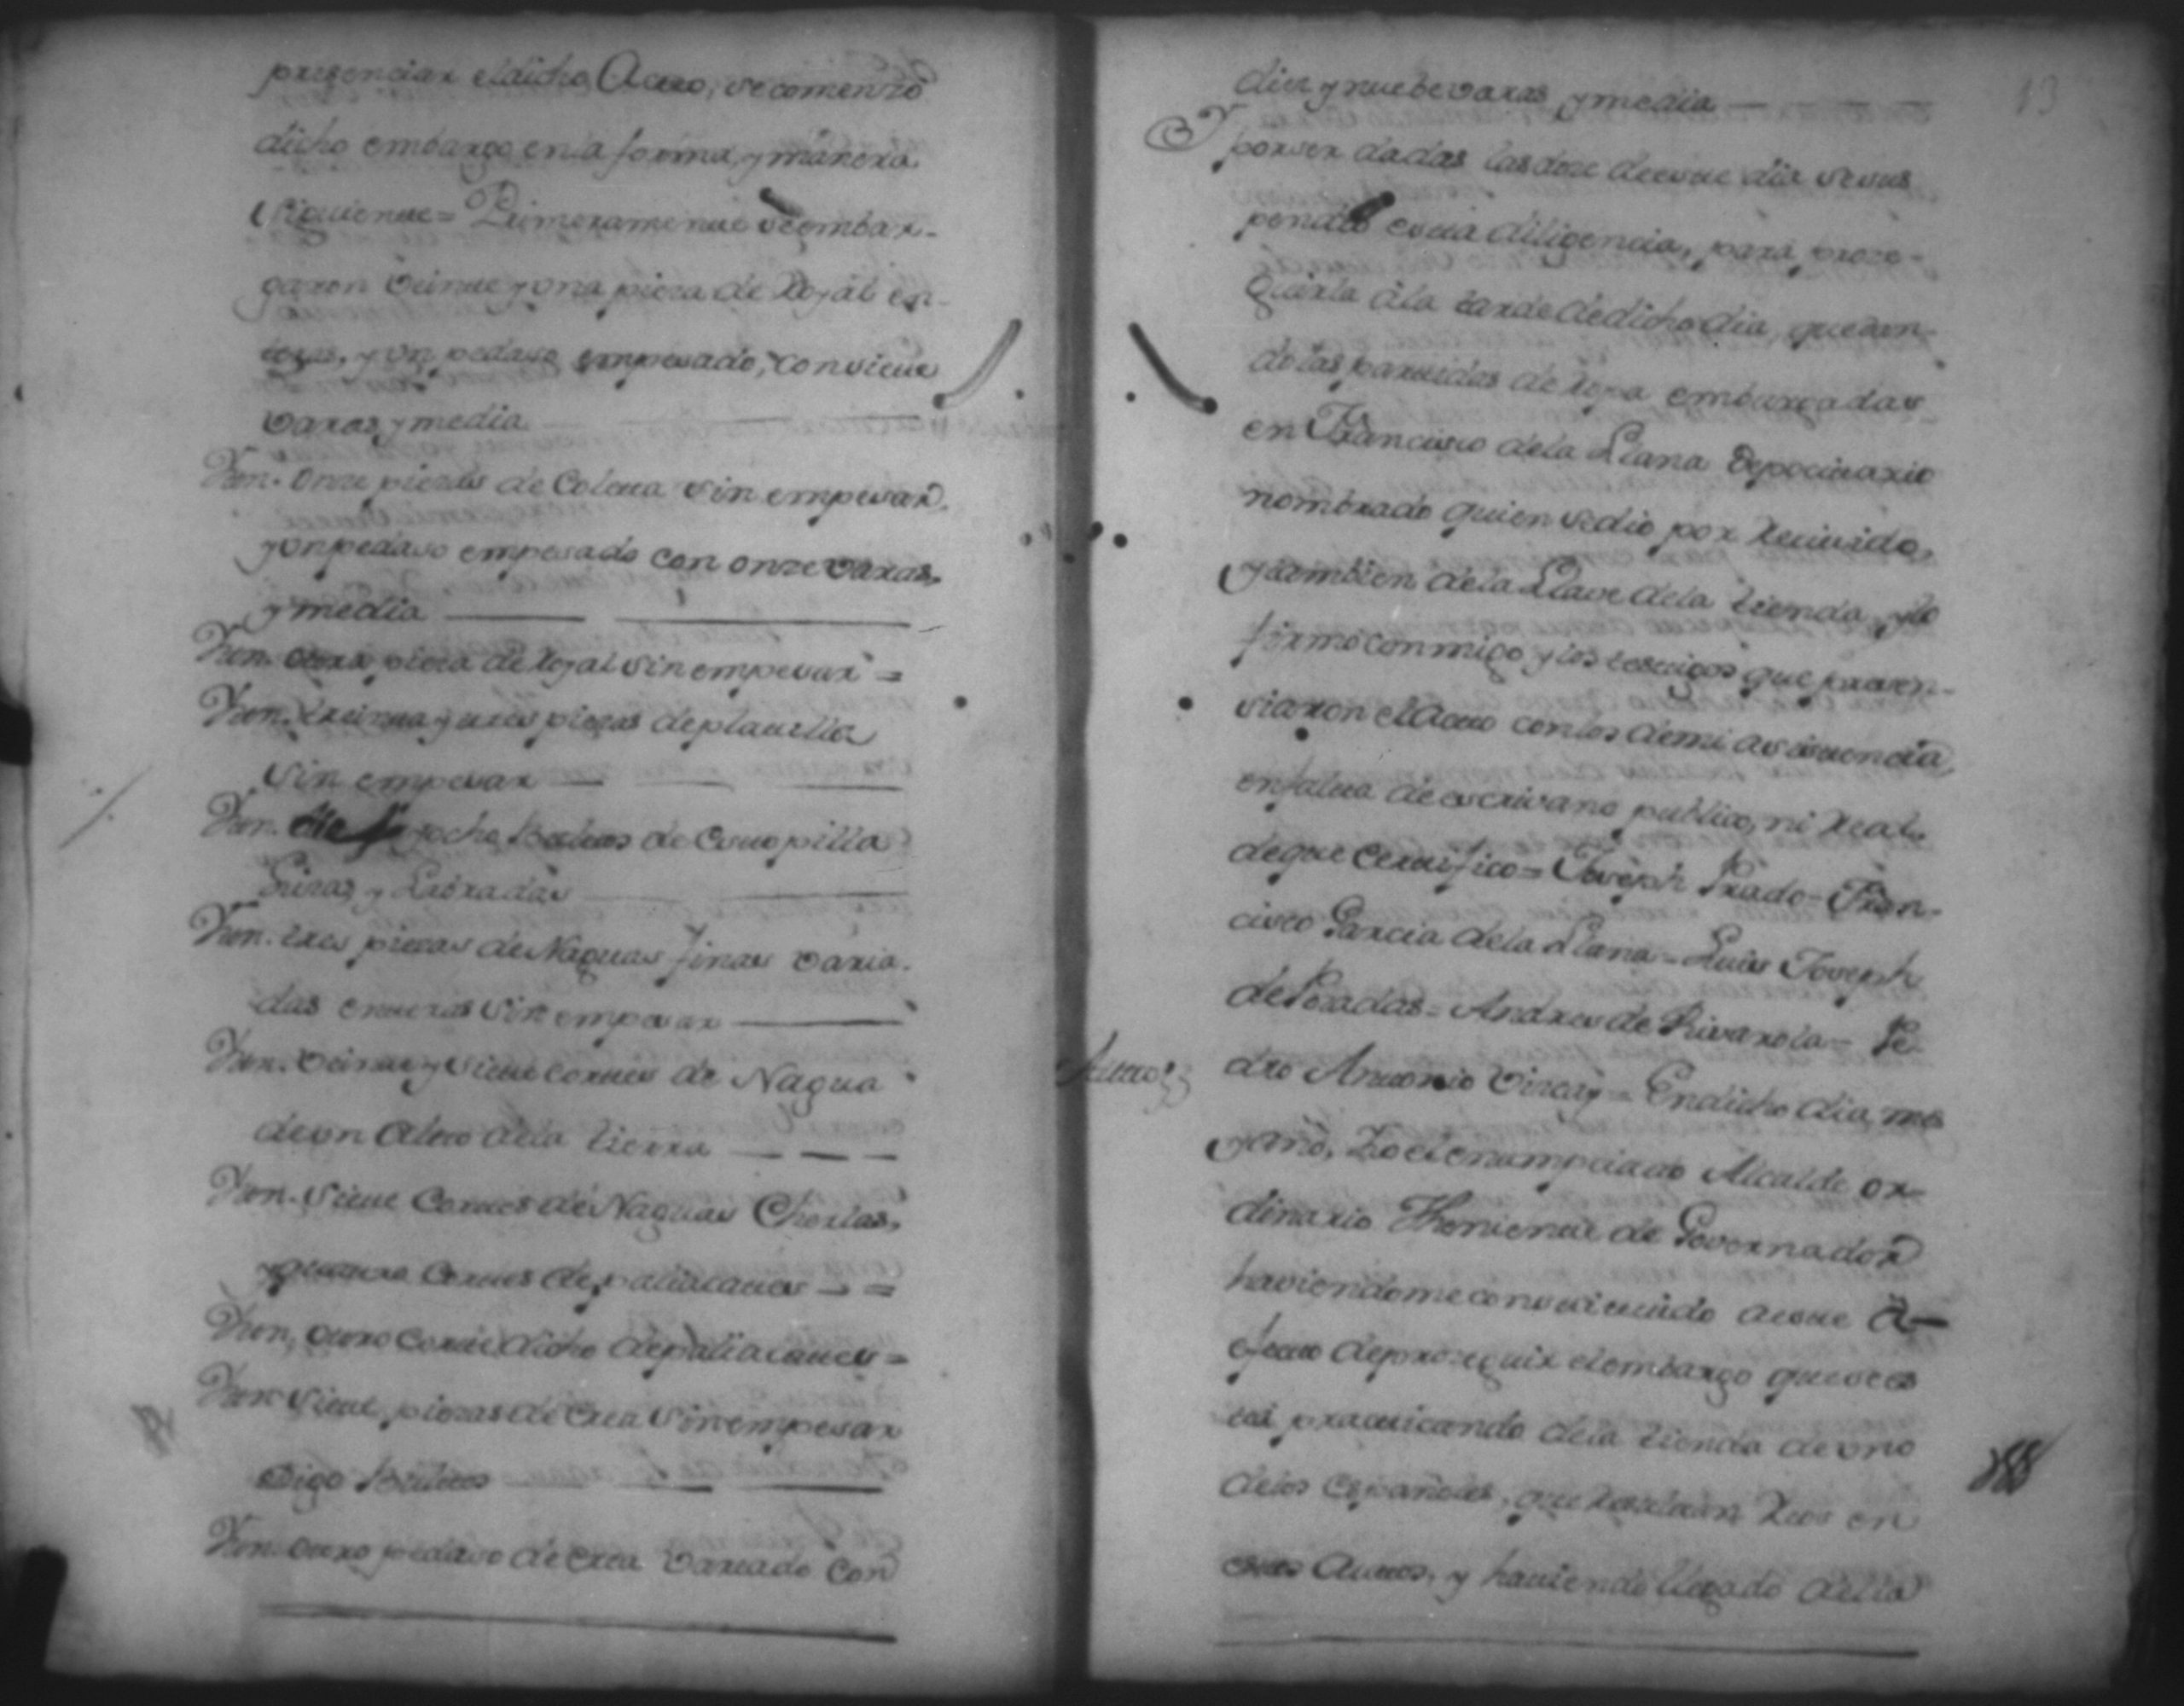 presenciar el dicho Acto, se comenzó
dicho embargo en la forma, y manera
siguiente = Primeramente se embar-
garon veinte y una pieza de Royal en-
teras, y un pedaso empesado, con siete
varas y media
Yten. onze piezas de Coleta sin empesar,
y un pedaso empesado con onze varas,
y media
Yten. otra pieza de Royal sin empesar =
Yten. treinta y tres piezas de platilla
sin empesar
Yten. y ocho Bultos de Estopilla
Lizas, y Labradas
Yten. tres piezas de Naguas finas varia-
das enteras sin empesar
Yten. veinte y siete cortes de Nagua
de un Alto de la tierra
Yten. siete Cortes de Naguas Chorlas,
y quatro Cortes de paliacates =
Yten, otro corte dicho de paliacates =
Yten siete piezas de Crea sin empesar
Digo Bultos
Yten otro pedaso de crea variado con
13
diez y nuebe varas, y media
Y por ser dadas las doze de este dia se sus
pendió esta diligencia, para proze-
guirla á la tarde de dicho dia, quedan-
do las partidas de ropa embargadas
en Francisco de la Llana Depocitario
nombrado quien se dio por recivido,
y tambien de la Llave de la tienda, y lo
firmó conmigo y los testigos que presen-
siaron el Acto con los de mi asistencia,
en falta de escrivano publico, ni Real
de que certifico = Joseph Prado = Fran-
cisco Garcia de la Llana = Luis Joseph
de Posadas = Andres de Rivarola = Pe-
Autto
dro Antonio Vircay = En dicho dia, mes
y año, Yo el enumpciado Alcalde or-
dinario Theniente de Governador
haviendome constituido a este
efecto de prozeguir el embargo que se es
tá practicando de la tienda de uno
de los Españoles, que resultan Reos en
estos Auttos, y haviendo llegado della